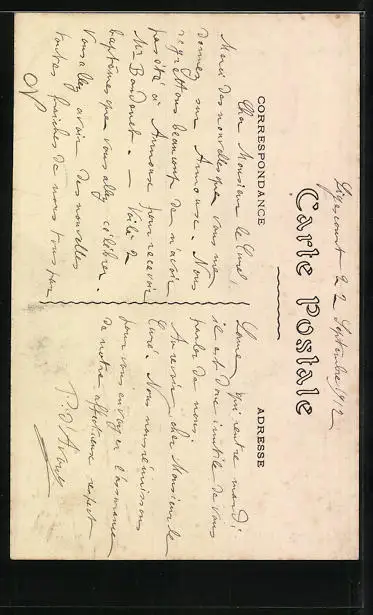 Ligescourt 22 Septembre 1912
Carte Postale
CORRESPONDANCE
ADRESSE
Cher Monsieur le Curé,
Merci des nouvelles que vous me
donnez sur Arnouse. Nous
regrettons beaucoup de n'avoir
pas été à Arnouse pour recevoir
Mr Baudouet. — Voilà 2
baptêmes que vous allez célébrer.
Vous allez avoir des nouvelles
toutes fraiches de nous tous par
qui rentre mardi.
il est donc inutile de vous
parler de nous.
Au revoir cher Monsieur le
Curé. Nous nous réunissons
pour vous envoyer l'assurance
de notre affectueux respect